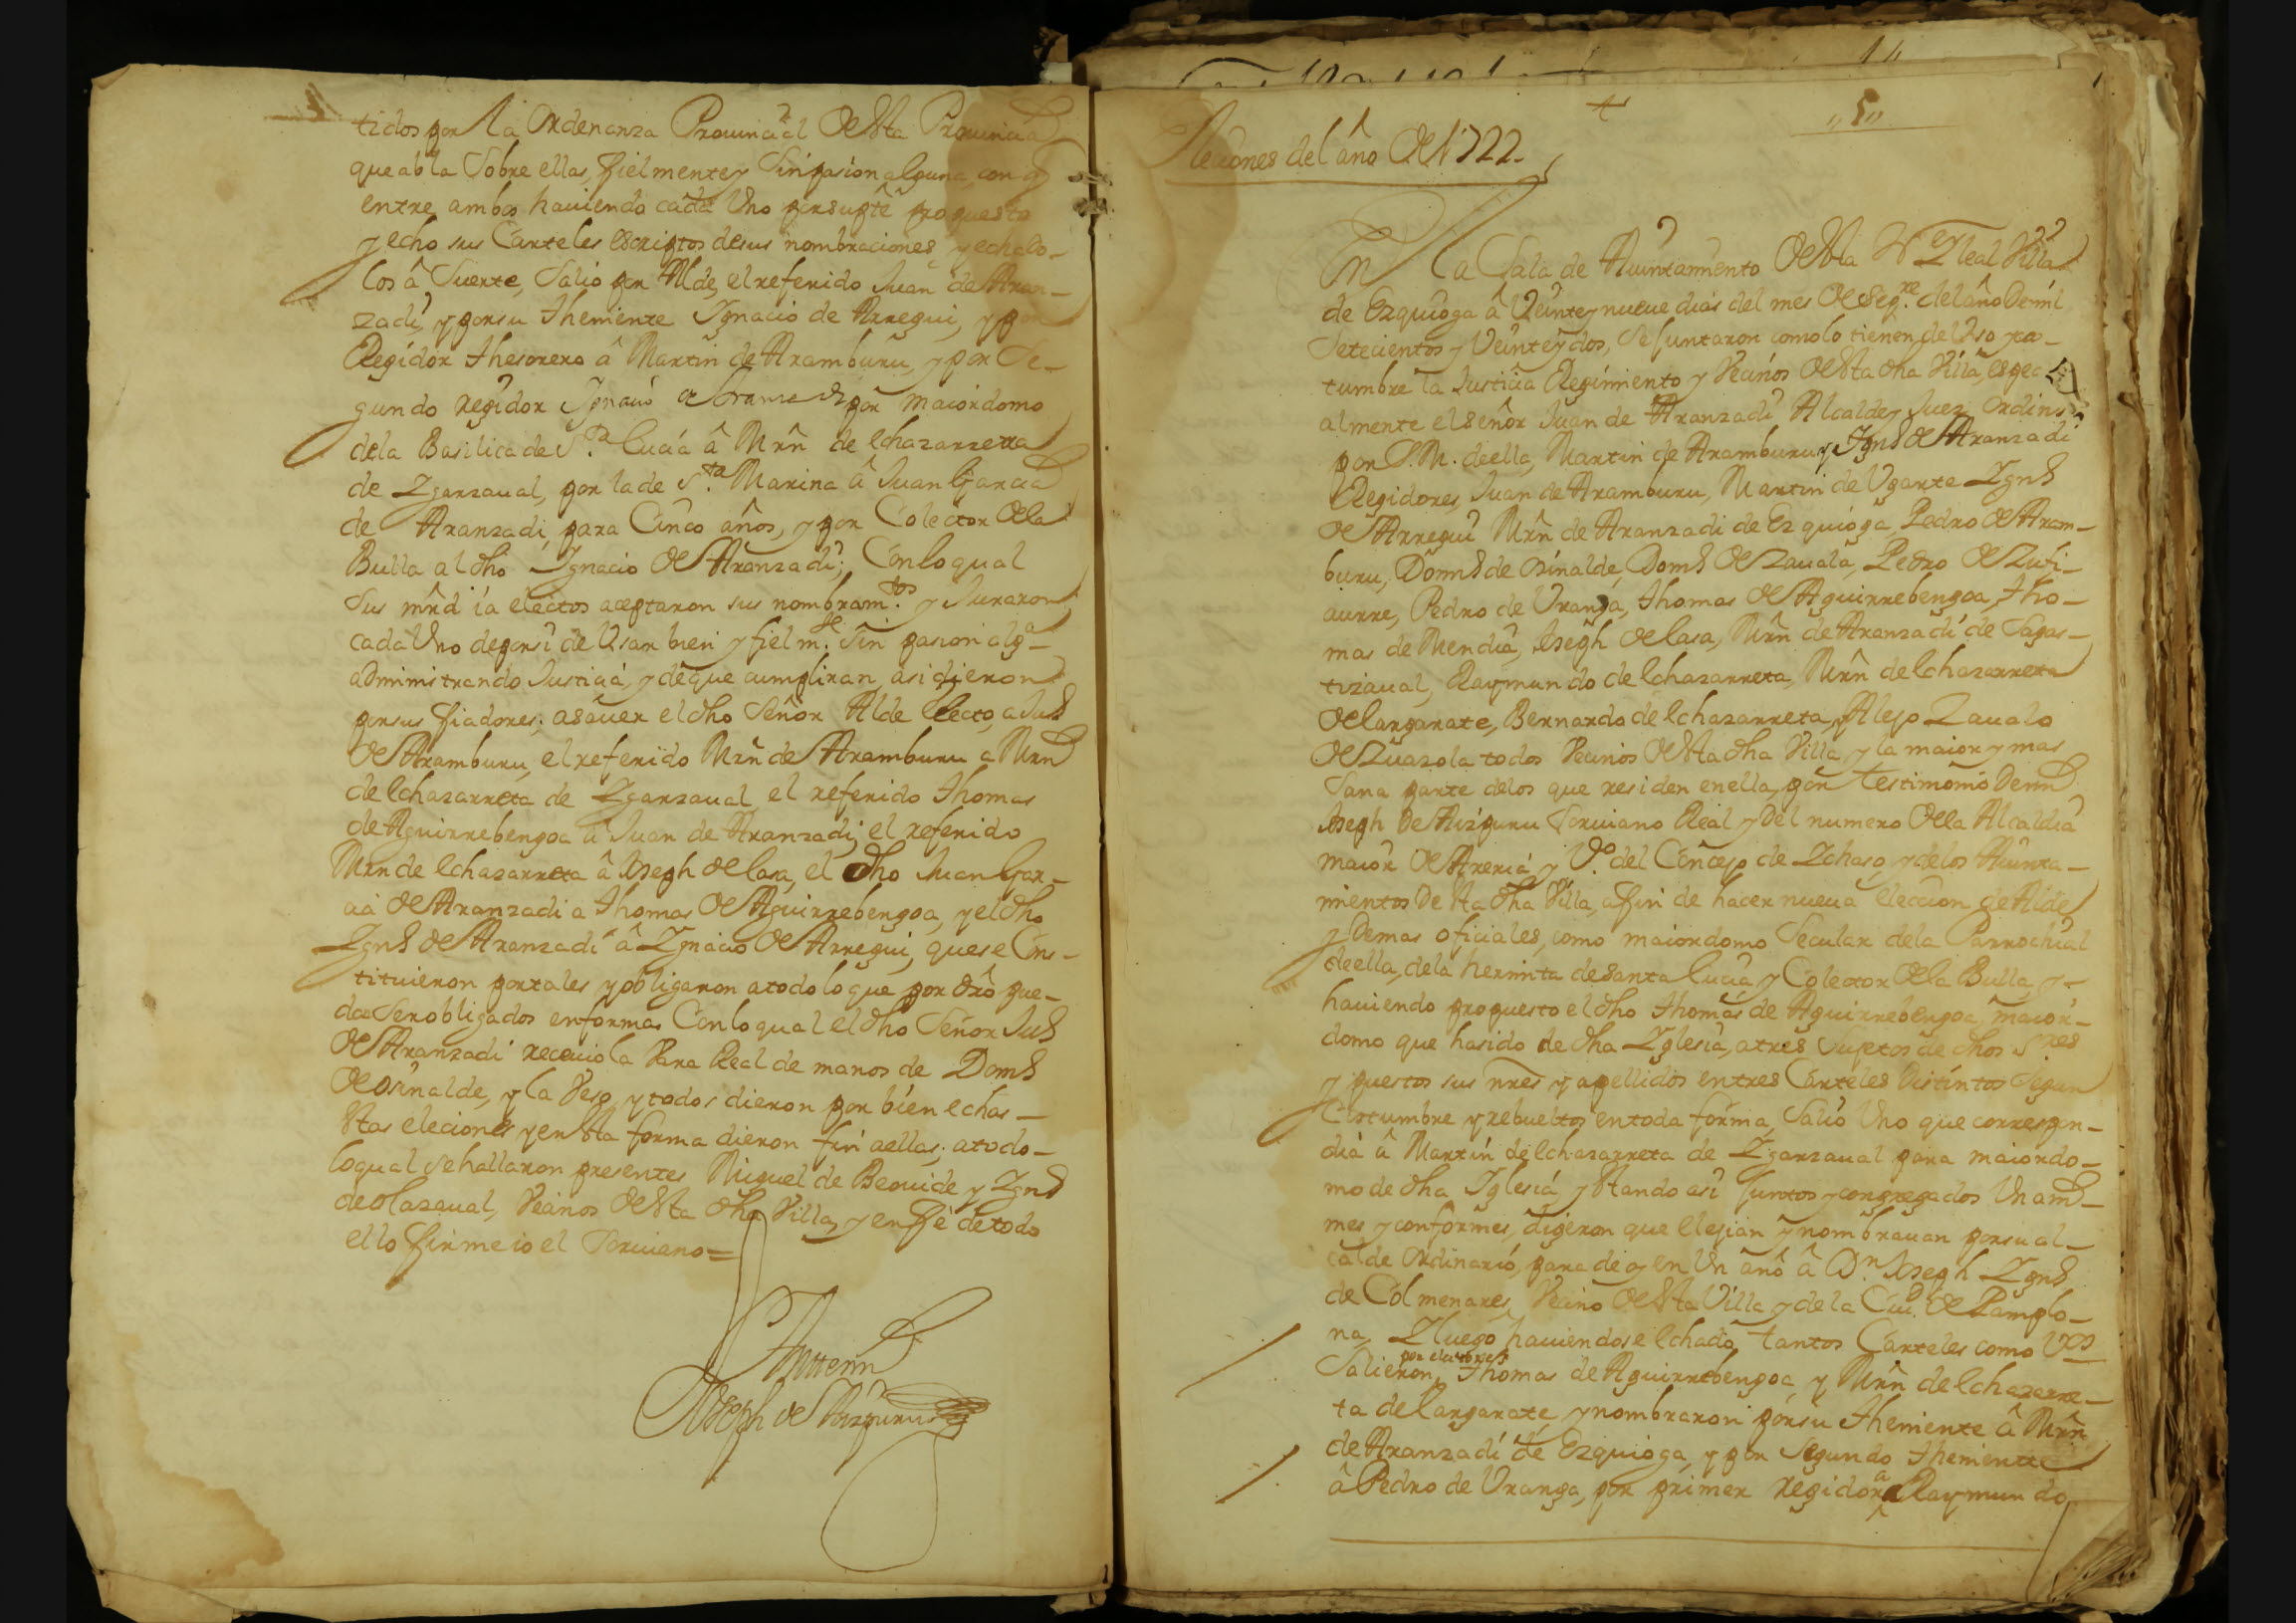 tidos por la Ordenanza Prouincial desta Prouincia
que abla Sobre ellas, fielmente y Sin pasion alguna, con q
entre ambos hauiendo cada Vno por su pte propuesto
y echo sus Carteles escriptos de sus nombraciones y echado-
los â Suerte, Salio por Alde, el referido Juan de Aran-
zadi, y por su Theniente Ignacio de Arregui, y por
Regidor Thesorero â Martin de Aramburu, y por Se-
gundo Regidor Ignacio de por maiordomo
dela Basilica de Sta. Lucia â Mrn de echazarreta
de Igarzaual, por la de Sta. Marina â Juan Garcia
de Aranzadi, para Cinco años, y por Colector dela
Bulla al dho Ignacio de Aranzadi; Con lo qual
Sus mrd ia electos aceptaron sus nombram.tos y Juraron
cada Vno de por si de Vsar bien y fiel m.te Sin pasion alga
administrando Justicia, y de que cumpliran, asi dieron
por sus fiadores; asauer el dho Señor Alde electo, a Jun
de Aramburu, el referido Mrn de Aramburu a Mrn
de echazarreta de Igarzaual, el referido Thomas
de Aguirrebengoa â Juan de Aranzadi; el referido
Mrn de echazarreta â Joseph de lasa, el dho Juan Gar-
cia de Aranzadi a Thomas de Aguirrebengoa, y el dho
Ign.o de Aranzadi â Ignacio de Arregui, que se Cons-
tituieron por tales y obligaron a todo lo que por dro pue-
dan Ser obligados en forma, Con lo qual el dho Señor Jun
de Aranzadi receuio la Vara Real de manos de Dom.o
de Orinalde, y la Veso, y todos dieron por bien echas-
stas eleciones y en sta forma dieron fin a ellas; a todo-
lo qual se hallaron presentes Miguel de Beouide y Ign.o
de olazaual, Vecinos desta dha Villa, y en fe de todo
ello firme io el Scruiano=
Ante mi
Joseph de Aizpuru
5
Eleciones del año de 1722.
En la Sala de Auintamiento desta N. y leal Villa
de Ezquioga â Veinte y nueue dias del mes de Sep.re del año de mil
Setecientos y Veinte y dos, Se Juntaron como lo tienen de Vso y cos-
tumbre la Justicia Regimiento y Vecinos desta dha Villa, especi
almente el señor Juan de Aranzadi Alcalde y Juez Ordin.o
por S.M. de ella, Martin de Aramburu y Ign.o de Aranzadi
Regidores, Juan de Aramburu, Martin de Vgarte Ign.o
de Arregui Mrn de Aranzadi de Ezquioga, Pedro de Aram-
buru, Dom.o de Orinalde, Dom.o de Zauala, Pedro de Zufi-
aurre, Pedro de Vranga, Thomas de Aguirrebengoa, Tho-
mas de Mendia, Joseph de lasa, Mrn de Aranzadi de Sagas-
tizaual, Raymundo de echazarreta, Mrn de echazarreta
de largarate, Bernardo de echazarreta, y Alejo Zauala
de Zuazola todos Vecinos desta dha Villa, y la maior y mas
Sana parte delos que residen en ella, por testimonio de mi
Joseph de Aizpuru Scruiano Real y del numero dela Alcaldia
maior de Areria, y V.o del Concejo de Ichaso, y delos Auinta-
mientos desta dha Villa, a fin de hacer nueua eleccion de Alde
y demas oficiales, como maiordomo Secular dela Parrochial
de ella, dela hermita de Santa Lucia y Colector dela Bulla, y-
hauiendo propuesto el dho Thomas de Aguirrebengoa, maior-
domo que ha sido de dha Iglesia, a tres Sujetos de dhos S.res
y puestos sus nres y apellidos en tres Carteles distintos Segun
Costumbre y rebueltos en toda forma, Salio Vno que correspon-
dia â Martin de echazarreta de Igarzaual para maiordo-
mo de dha Iglesia, y stando asi Juntos y congregados Vnani-
mes y conformes, digeron que elejian y nombrauan por su al-
calde Ordinario, para de oy en Vn año â Dn. Joseph Ign.o
de Colmenares, Vecino desta Villa y de la Ciu.d de Pamplo-
na, I luego hauiendose echado tantos Carteles como V.os
por electores
Salieron, Thomas de Aguirrebengoa, y Mrn de echazarre-
ta de largarate, y nombraron por su Theniente â Mrn
de Aranzadi de Ezquioga, y por Segundo Theniente
â Pedro de Vranga, por primer Regidor a Raymundo